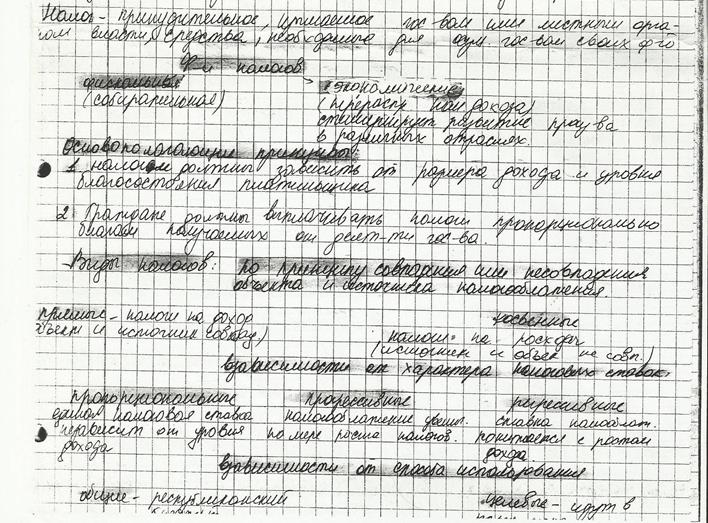 Налог - принудительное, изымаемое гос-вом или местными орга-
ном власти, средства, необходимые для осущ. гос-вом своих ф-ю
Ф-и налогов
фискальные экономические
(собирательная) (перераспр. нац. дохода)
стимулируют развитие пр-ва
в различных отраслях.
Основополагающие принципы:
1 налоги должны зависеть от размера дохода и уровня
благосостояния плательщика
2 Граждане должны выплачивать налоги пропорционально
благам получаемых от деят-ти гос-ва.
Виды налогов: по принципу совпадения или несовпадения
объекта и источника налогообложения.
прямые - налоги на доход косвенные
объект и источник совпад.) налоги на расходы
(источник и объек не совп.)
взависимости от характера налоговых ставок.
пропорциональные прогрессивные регрессивные
единая налоговая ставка налогообложение увелич. ставка налооблаж.
независит от уровня по мере роста налогов. понижается с ростом
дохода дохода.
взависимости от способа использования
общие - республиканский целевые - идут в